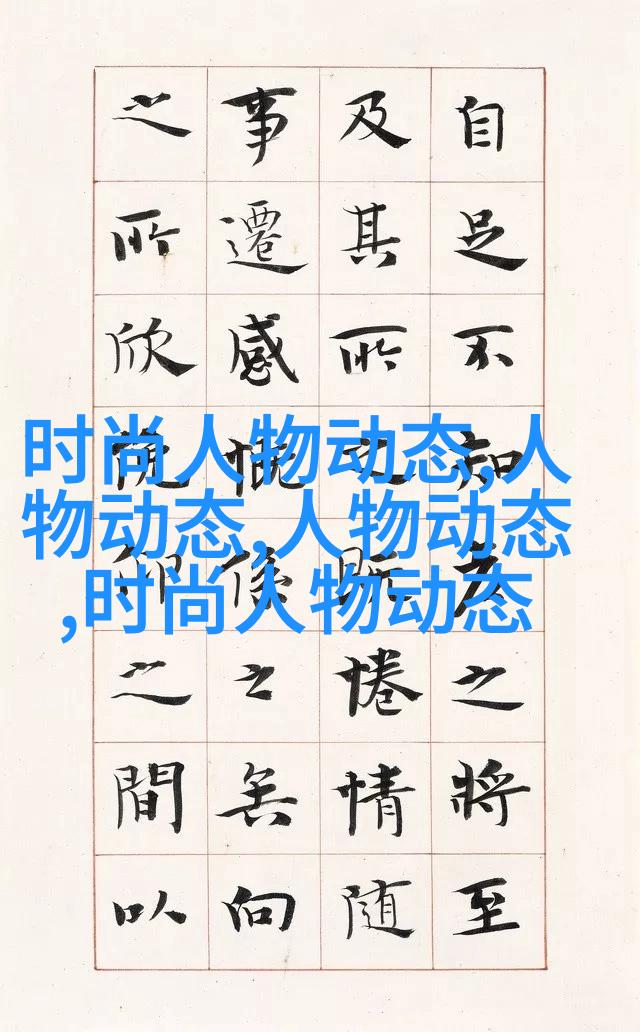 自足不知老之將至
及其所之既惓情随
事遷感慨係之矣向
之所欣俛仰之間以
时尚人物动态,人
物动态,人物动态
,时尚人物动态